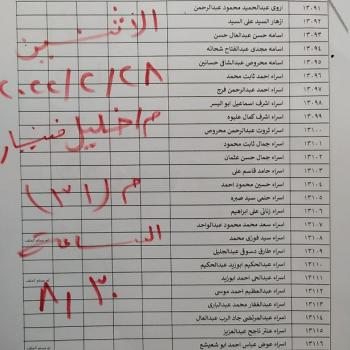 ١٣٠٩١ اروى عبدالحميد محمود عبدالرحمن
١٣٠٩٢ ازهار السيد على السيد
١٣٠٩٣ اسامه حسن عبدالعال حسن
١٣٠٩٤ اسامه مجدى عبدالفتاح شحاته
١٣٠٩٥ اسامه محروص عبدالشافى حسانين
١٣٠٩٦ اسراء احمد ثابت محمد
١٣٠٩٧ اسراء احمد عبدالرحمن فرج
١٣٠٩٨ اسراء اشرف اسماعيل ابو اليسر
١٣٠٩٩ اسراء اشرف كمال عليوه
١٣١٠٠ اسراء ثروت عبدالرحمن محروص
١٣١٠١ اسراء جمال ثابت محمود
١٣١٠٢ اسراء جمال حسن عثمان
١٣١٠٣ اسراء حامد قاسم على
١٣١٠٤ اسراء حسين محمود احمد
١٣١٠٥ اسراء حلمى سيد صبره
١٣١٠٦ اسراء زناتى على ابراهيم
١٣١٠٧ اسراء سعد محمد محمود عبدالواحد
١٣١٠٨ اسراء سيد فوزى محمد
١٣١٠٩ اسراء طارق دسوقى عبدالجليل
١٣١١٠ اسراء عبدالحكيم ابوزيد عبدالحكيم
١٣١١١ اسراء عبدالحى احمد ابوزيد
١٣١١٢ اسراء عبدالعظيم احمد موسى
١٣١١٣ اسراء عبدالغفار محمد عبدالبارى
١٣١١٤ اسراء عبدالمرتضى جاد الرب عبدالعال
١٣١١٥ اسراء عنتر ناجح عبدالعزيز
١٣١١٦ اسراء عوض عباس احمد ابو شعيشع
الاثنين
٢٠٢٢/٢/٢٨
م/خليل
م (٣١)
الساعة
٨,٣٠